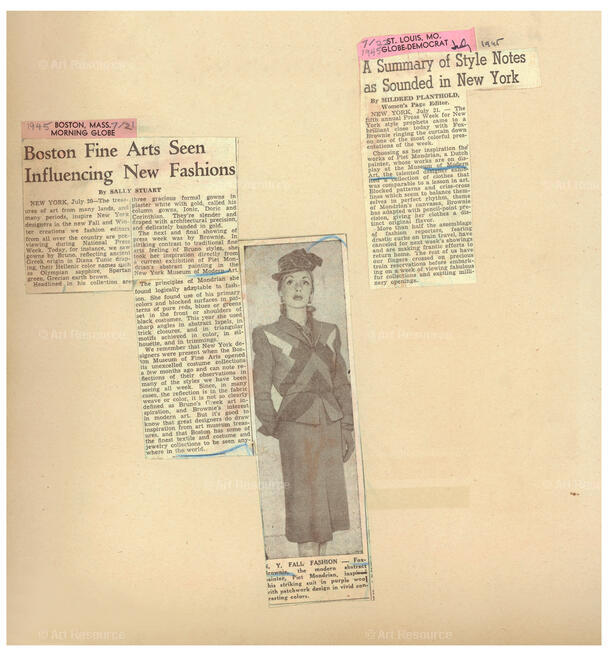 1945 BOSTON, MASS. 7/21
MORNING GLOBE
Boston Fine Arts Seen
Influencing New Fashions
By SALLY STUART
NEW YORK, July 20—The treas-
ures of art from many lands, and
many periods, inspire New York
designers in the new Fall and Win-
ter creations we fashion editors
from all over the country are pre-
viewing during National Press
Week. Today, for instance, we saw
gowns by Bruno, reflecting ancient
Greek origin in Diana Tunic drap-
ing, their Hellenic color names such
as Olympian sapphire, Spartan
green, Grecian earth brown.
Headlined in his collection are
three gracious formal gowns in
plaster white with gold, called his
column gowns, Ionic, Doric and
Corinthian. They're slender and
draped with architectural precision,
and delicately banded in gold.
The next and final showing of
press week was by Brownie. In
striking contrast to traditional fine
arts feeling of Bruno styles, she
took her inspiration directly from
a current exhibition of Piet Mon-
drian's abstract painting in the
New York Museum of Modern Art.
The principles of Mondrian she
found logically adaptable to fash-
ion. She found use of his primary
colors and blocked surfaces in pat-
terns of pure reds, blues or greens
set in the front or shoulders of
black costumes. This year she used
sharp angles in abstract lapels, in
trick closures, and in triangular
motifs achieved in color, in sil-
houette, and in trimmings.
We remember that New York de-
signers were present when the Bos-
ton Museum of Fine Arts opened
its unexcelled costume collections
a few months ago and can note re-
flections of their observations in
many of the styles we have been
seeing all week. Since, in many
cases, the reflection is in the fabric
weave or color, it is not so clearly
defined as Bruno's Greek art in-
spiration, and Brownie's interest
in modern art. But it's good to
know that great designers do draw
inspiration from art museum treas-
ures, and that Boston has some of
the finest textile and costume and
jewelry collections to be seen any-
where in the world.
7/22 ST. LOUIS, MO.
1945 GLOBE-DEMOCRAT July 1945
A Summary of Style Notes
as Sounded in New York
By MILDRED PLANTHOLD,
Women's Page Editor.
NEW YORK, July 21. — The
fifth annual Press Week for New
York style prophets came to a
brilliant close today with Fox-
Brownie ringing the curtain down
on one of the most colorful pres-
entations of the week.
Choosing as her inspiration the
works of Piet Mondrian, a Dutch
painter, whose works are on dis-
play at the Museum of Modern
Art, the talented designer exhib-
ited a collection of clothes that
was comparable to a lesson in art.
Blocked patterns and criss-cross
lines which seem to balance them-
selves in perfect rhythm, theme
of Mondrian's canvases, Brownie
has adapted with pinpoint pre-
cision, giving her clothes a dis-
tinct original flavor.
More than half the assemblage
of fashion reporters, fearing
drastic curbs on train travel, have
canceled for next week's showings
and are making frantic efforts to
return home. The rest of us have
our fingers crossed on precious
train reservations before embark-
ing on a week of viewing fabulous
fur collections and exciting mill-
inery openings.
N. Y. FALL FASHION — Fox-
Brownie, the modern abstract
painter, Piet Mondrian, inspired
his striking suit in purple wool
with patchwork design in vivid con-
trasting colors.
© Art Resource
© Art Resource
© Art Resource
© Art Resource
© Art Resource
© Art Resource